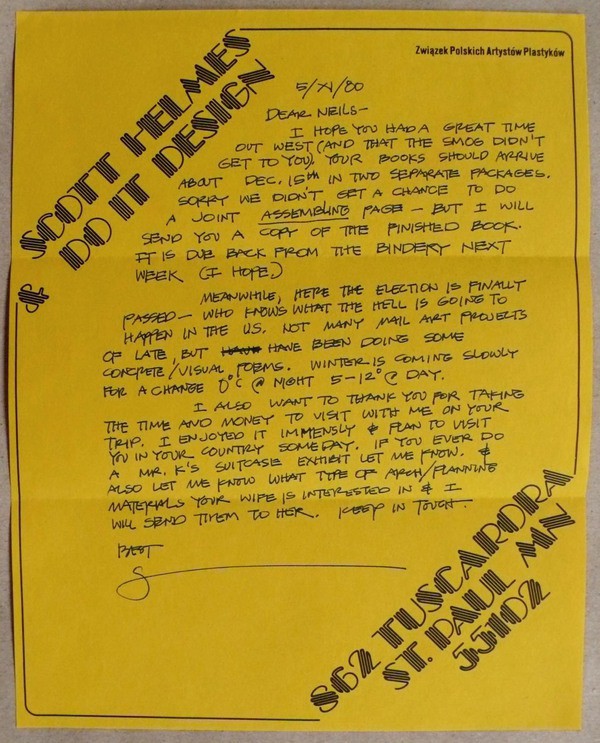 & SCOTT HELMES
DO IT DESIGN
Związek Polskich Artystów Plastyków
5/XI/80
DEAR NEILS-
I HOPE YOU HAD A GREAT TIME
OUT WEST (AND THAT THE SMOG DIDN'T
GET TO YOU). YOUR BOOKS SHOULD ARRIVE
ABOUT DEC. 15th IN TWO SEPARATE PACKAGES.
SORRY WE DIDN'T GET A CHANCE TO DO
A JOINT ASSEMBLING PAGE - BUT I WILL
SEND YOU A COPY OF THE FINISHED BOOK.
IT IS DUE BACK FROM THE BINDERY NEXT
WEEK (I HOPE.)
MEANWHILE, HERE THE ELECTION IS FINALLY
PASSED - WHO KNOWS WHAT THE HELL IS GOING TO
HAPPEN IN THE U.S. NOT MANY MAIL ART PROJECTS
OF LATE, BUT HAVE BEEN DOING SOME
CONCRETE/VISUAL POEMS. WINTER IS COMING SLOWLY
FOR A CHANGE 0°C @ NIGHT 5-12° @ DAY.
I ALSO WANT TO THANK YOU FOR TAKING
THE TIME AND MONEY TO VISIT WITH ME ON YOUR
TRIP. I ENJOYED IT IMMENSLY & PLAN TO VISIT
YOU IN YOUR COUNTRY SOMEDAY. IF YOU EVER DO
A MR. K'S SUITCASE EXHIBIT LET ME KNOW. &
ALSO LET ME KNOW WHAT TYPE OF ARCH/PLANNING
MATERIALS YOUR WIFE IS INTERESTED IN & I
WILL SEND THEM TO HER. KEEP IN TOUCH.
BEST
S
862 TUSCARORA
ST. PAUL MN
55102